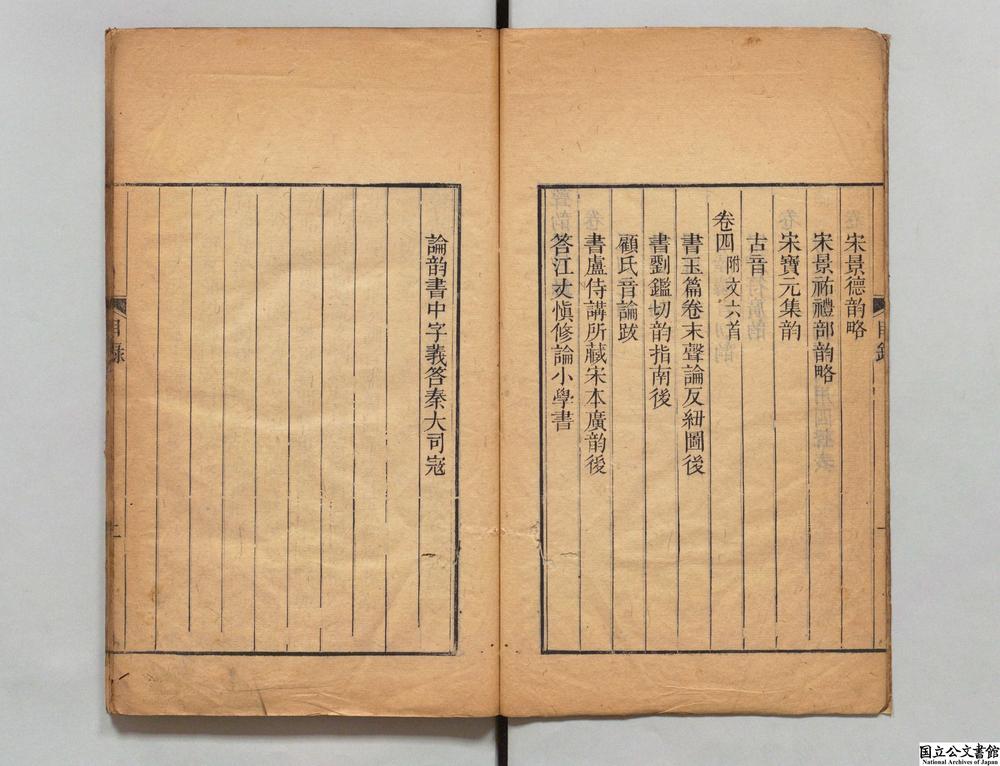 宋景德韵略
宋景祐禮部韵略
宋寶元集韵
古音
卷四 附文六首
書玉篇卷末聲論反紐圖後
書劉鑑切韵指南後
顧氏音論跋
書盧侍講所藏宋本廣韵後
答江丈慎修論小學書
論韵書中字義答秦大司寇
目錄
二
国立公文書館
National Archives of Japan